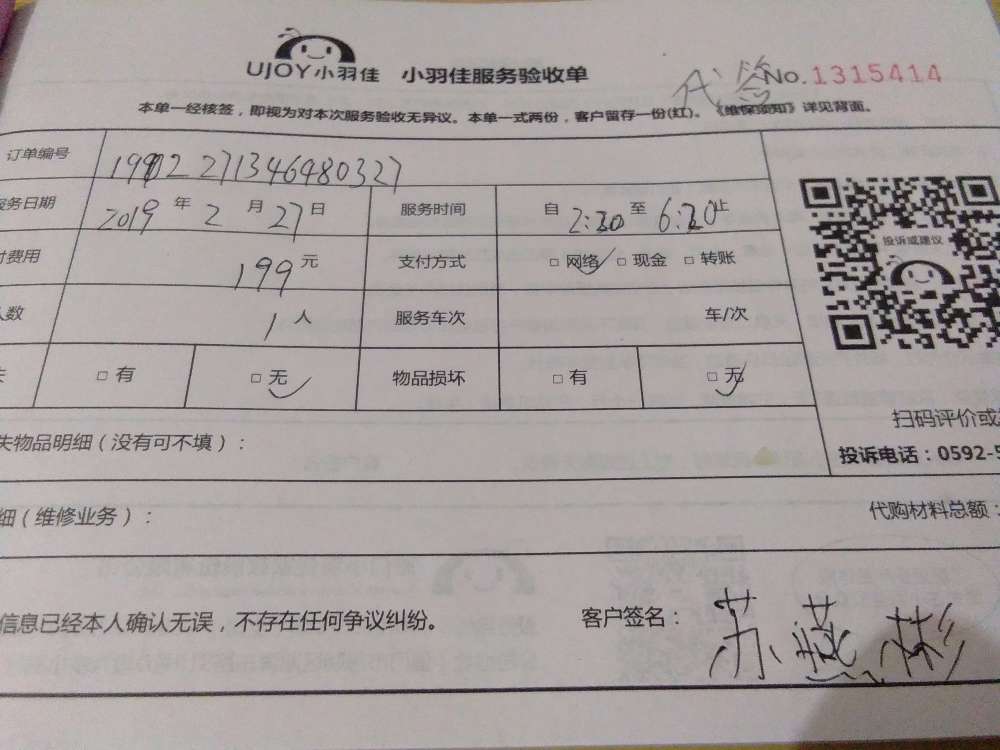 UJOY小羽佳 小羽佳服务验收单 代签 No.1315414
本单一经核签，即视为对本次服务验收无异议。本单一式两份，客户留存一份(红)。《维保须知》详见背面。
订单编号 190227134648032
服务日期 2019 年 2 月 27 日 服务时间 自 2:30 至 6:30 止
投诉或建议
付费用 199 元 支付方式 □ 网络 ✓ □ 现金 □ 转账
人数 1 人 服务车次 车/次
失 □ 有 □ 无 ✓ 物品损坏 □ 有 □ 无 ✓
扫码评价或
失物品明细（没有可不填）：
投诉电话：0592-5
细（维修业务）： 代购材料总额：
信息已经本人确认无误，不存在任何争议纠纷。 客户签名：苏燕彬